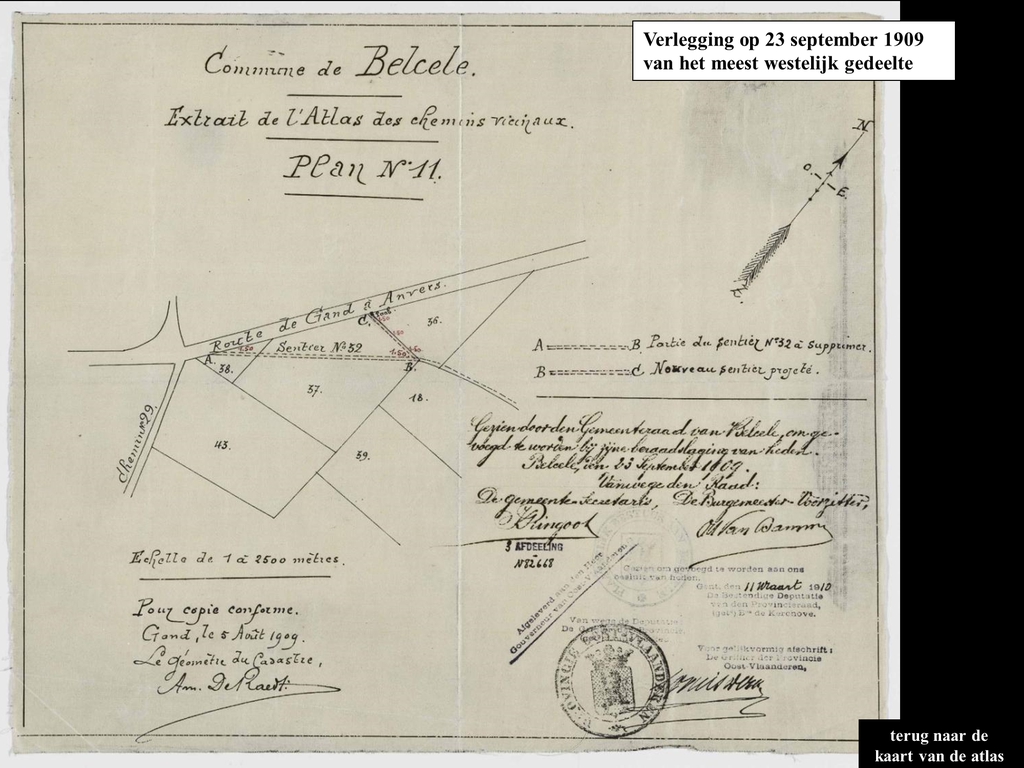 Verlegging op 23 september 1909
van het meest westelijk gedeelte
Commune de Belcele.
Extrait de l'Atlas des chemins vicinaux.
Plan N° 11.
N
O.
E.
Route de Gand à Anvers.
C.
36.
A.
Sentier N° 32
1.50
B.
38.
37.
18.
43.
39.
Chemin N° 29.
A B Partie du sentier N° 32 à supprimer.
B C Nouveau sentier projeté.
Gezien door den Gemeenteraad van Belcele, om ge-
voegd te worden bij zijne beraadslaging van heden.
Belcele, den 23 September 1909.
Vanwege den Raad:
De gemeente-Secretaris, De Burgemeester-Voorzitter,
3 AFDEELING
N 82668
Afgeleverd aan den Heer
Gouverneur van Oost-Vlaanderen
Gezien om gevoegd te worden aan ons
besluit van heden.
Gent, den 11 Maart 1910
De Bestendige Deputatie
van den Provincieraad,
(get.) Bon de Kerchove.
Van wege de Deputatie:
Voor gelijkvormig afschrift:
De Griffier der Provincie
Oost-Vlaanderen,
PROVINCIE OOST-VLAANDEREN
Echelle de 1 à 2500 mètres.
Pour copie conforme.
Gand, le 5 Août 1909.
Le géomètre du Cadastre,
Am. De Raedt.
terug naar de
kaart van de atlas